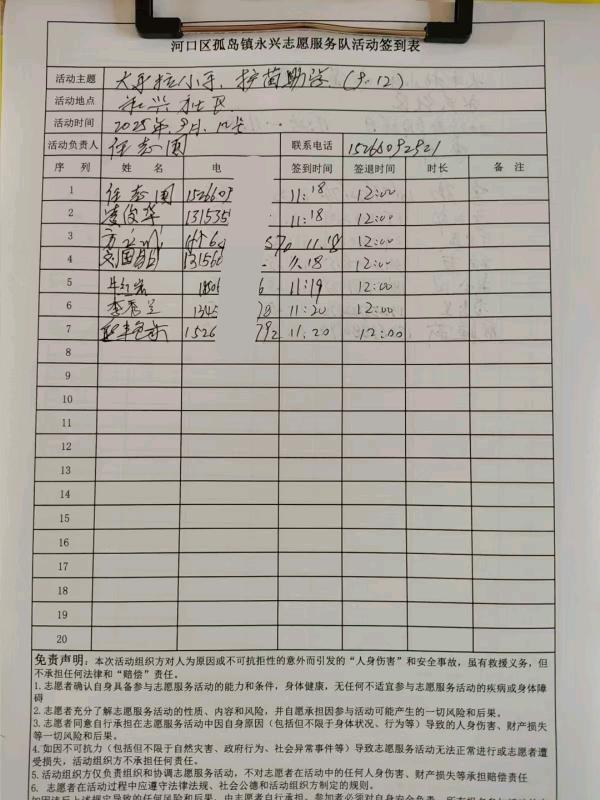 河口区孤岛镇永兴志愿服务队活动签到表
活动主题 大手拉小手、护苗助学 (9.12)
活动地点 永兴社区
活动时间 2025年.9月.12号
活动负责人 任志国 联系电话
序 列 姓 名 电 签到时间 签退时间 时长 备 注
1 任志国 1526609 11:18 12:00
2 凌俊华 131535 11:18 12:00
3 570 11.18 12:00
4 131560 11.18 12:00
5 6 11:19 12:00
6 李秀兰 1345 78 11:20 12:00
7 1526 792 11.20 12:00
8
9
10
11
12
13
14
15
16
17
18
19
20
免责声明：本次活动组织方对人为原因或不可抗拒性的意外而引发的“人身伤害”和安全事故，虽有救援义务，但
不承担任何法律和“赔偿”责任。
1. 志愿者确认自身具备参与志愿服务活动的能力和条件，身体健康，无任何不适宜参与志愿服务活动的疾病或身体障
碍
2. 志愿者充分了解志愿服务活动的性质、内容和风险，并自愿承担因参与活动可能产生的一切风险和后果。
3. 志愿者同意自行承担在志愿服务活动中因自身原因（包括但不限于身体状况、行为等）导致的人身伤害、财产损失
等一切风险和后果。
4. 如因不可抗力（包括但不限于自然灾害、政府行为、社会异常事件等）导致志愿服务活动无法正常进行或志愿者遭
受损失，活动组织方不承担任何责任。
5. 活动组织方仅负责组织和协调志愿服务活动，不对志愿者在活动中的任何人身伤害、财产损失等承担赔偿责任
6. 志愿者在活动过程中应遵守法律法规、社会公德和活动组织方制定的规则。